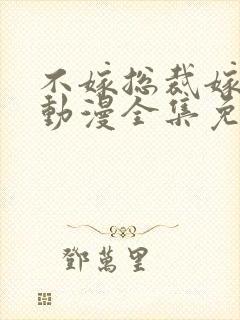 不嫁总裁嫁
動漫全集免
鄧萬里